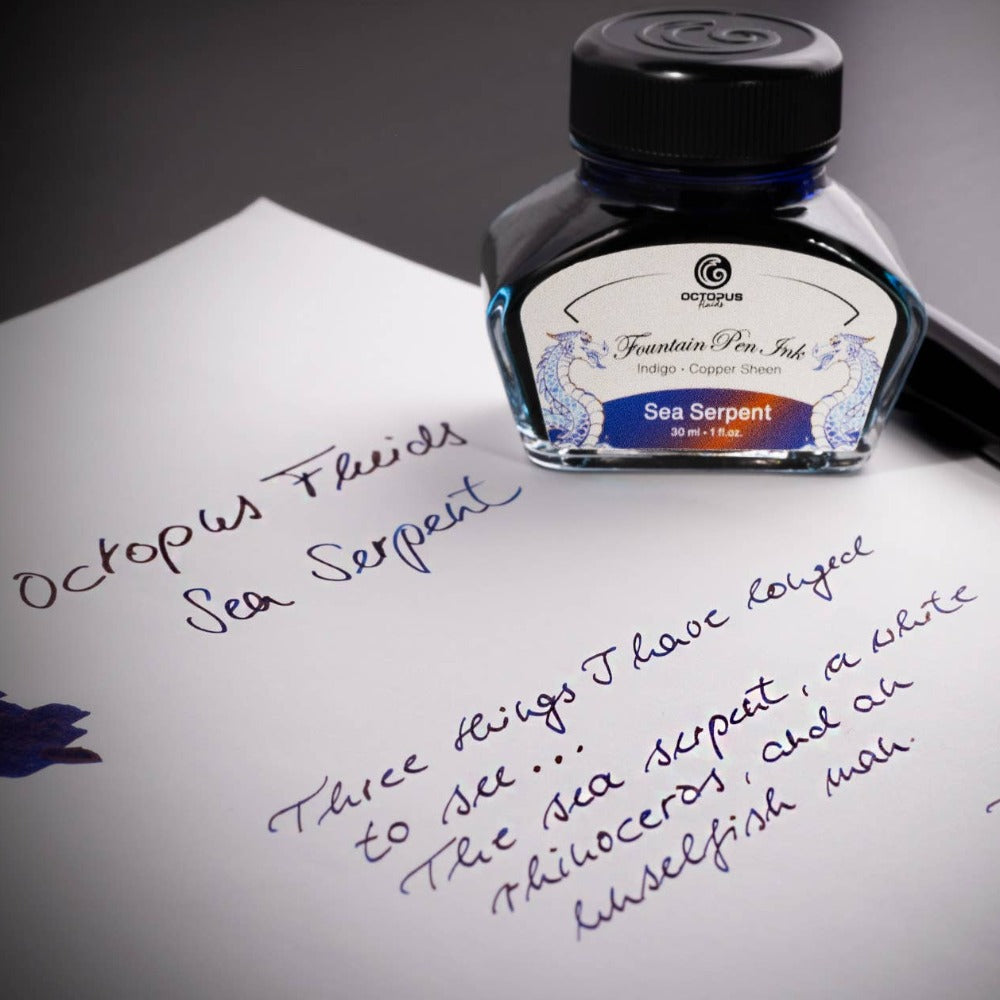 OCTOPUS
fluids
Fountain Pen Ink
Indigo · Copper Sheen
Sea Serpent
30 ml • 1 fl.oz.
Octopus Fluids
Sea Serpent
Three things I have longed
to see...
The sea serpent, a white
rhinoceros, and an
unselfish man.